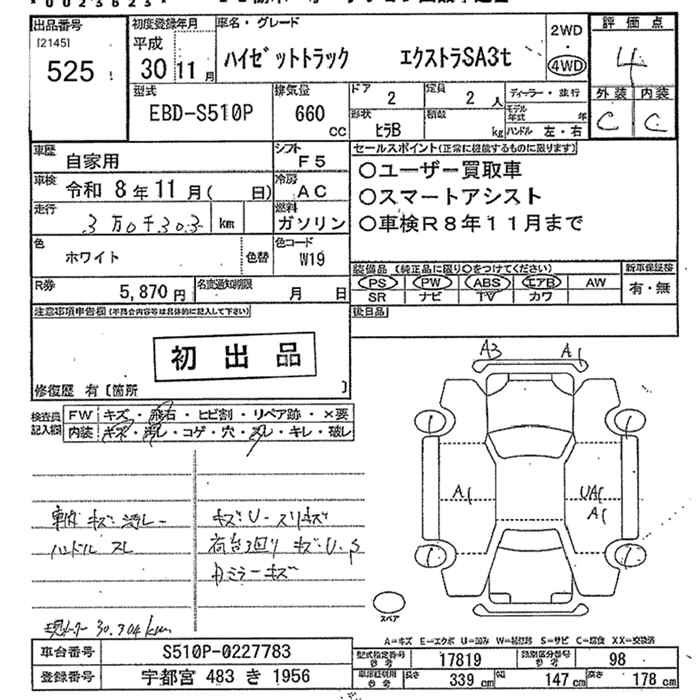 *0023623*
出品番号 初度登録年月 車名・グレード 2WD 評価点
[2145] 平成 ・
525 30年11月 ハイゼットトラック エクストラSA3t 4WD 4
型式 排気量 ドア 2 定員 2人 ディーラー・並行 外装 内装
EBD-S510P 660cc 形状 ヒラB 積載 kg モデル年式 年 C C
ハンドル 左・右
車歴 自家用 シフト F5 セールスポイント(正常に機能するものに限ります)
車検 令和 8年11月( 日) 冷房 AC ○ユーザー買取車
走行 3万0千303 km 燃料 ガソリン ○スマートアシスト
○車検R8年11月まで
色 ホワイト 色替 色コード W19
装備品 (純正品に限り○をつけてください) 新車保証書
R券 5,870円 名変通知期限 月 日 PS PW ABS エアB AW 有・無
SR ナビ TV カワ
注意事項申告欄(不具合内容等は具体的に記入して下さい) 後日品
初出品
修復歴 有 [箇所 ]
A3 A1
検査員 FW キズ・飛石・ヒビ割・リペア跡・×要
記入欄 内装 キズ・汚レ・コゲ・穴・スレ・キレ・破レ
A1 UA1
A1
車内 キズ 汚レ キズ・U・スリキズ
ハンドル スレ 荷台回り キズ・U・S
ミラーキズ
スペア
30,304km
A=キズ E=エクボ U=凹み W=補修跡 S=サビ C=腐食 XX=交換済
車台番号 S510P-0227783 型式指定番号 参考 17819 類別区分番号 参考 98
登録番号 宇都宮 483 き 1956 長さ 339cm 幅 147cm 高さ 178cm